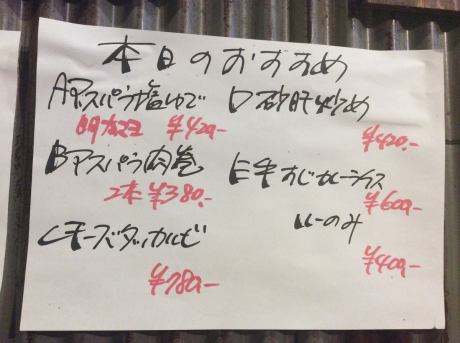 本日のおすすめ
Aアスパラ塩ゆで
明太マヨ ¥420-
Bアスパラ肉巻
2本 ¥380.-
Cチーズダッカルビ
¥780-
D砂肝炒め
¥420.-
E牛すじカレーライス
¥600-
ルーのみ
¥400-